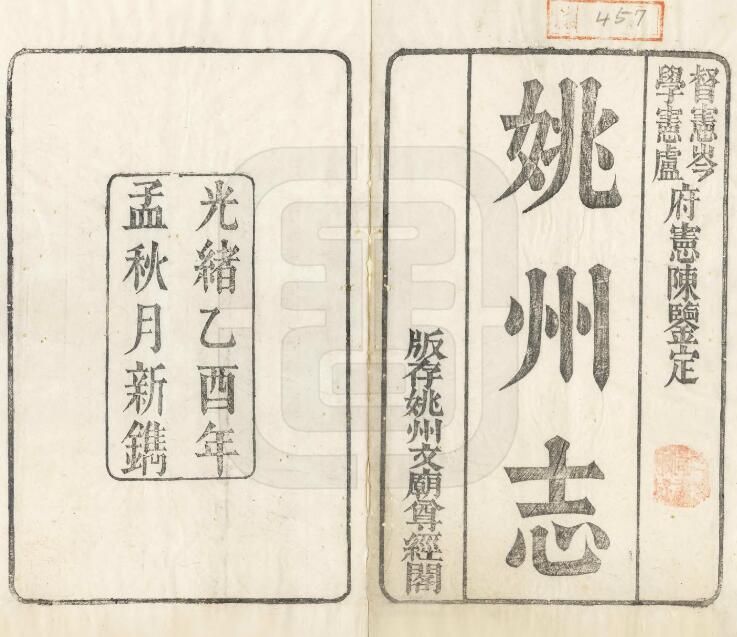 457
督憲岑
學憲盧
府憲陳鑒定
姚州志
版存姚州文廟尊經閣
光緒乙酉年
孟秋月新鐫